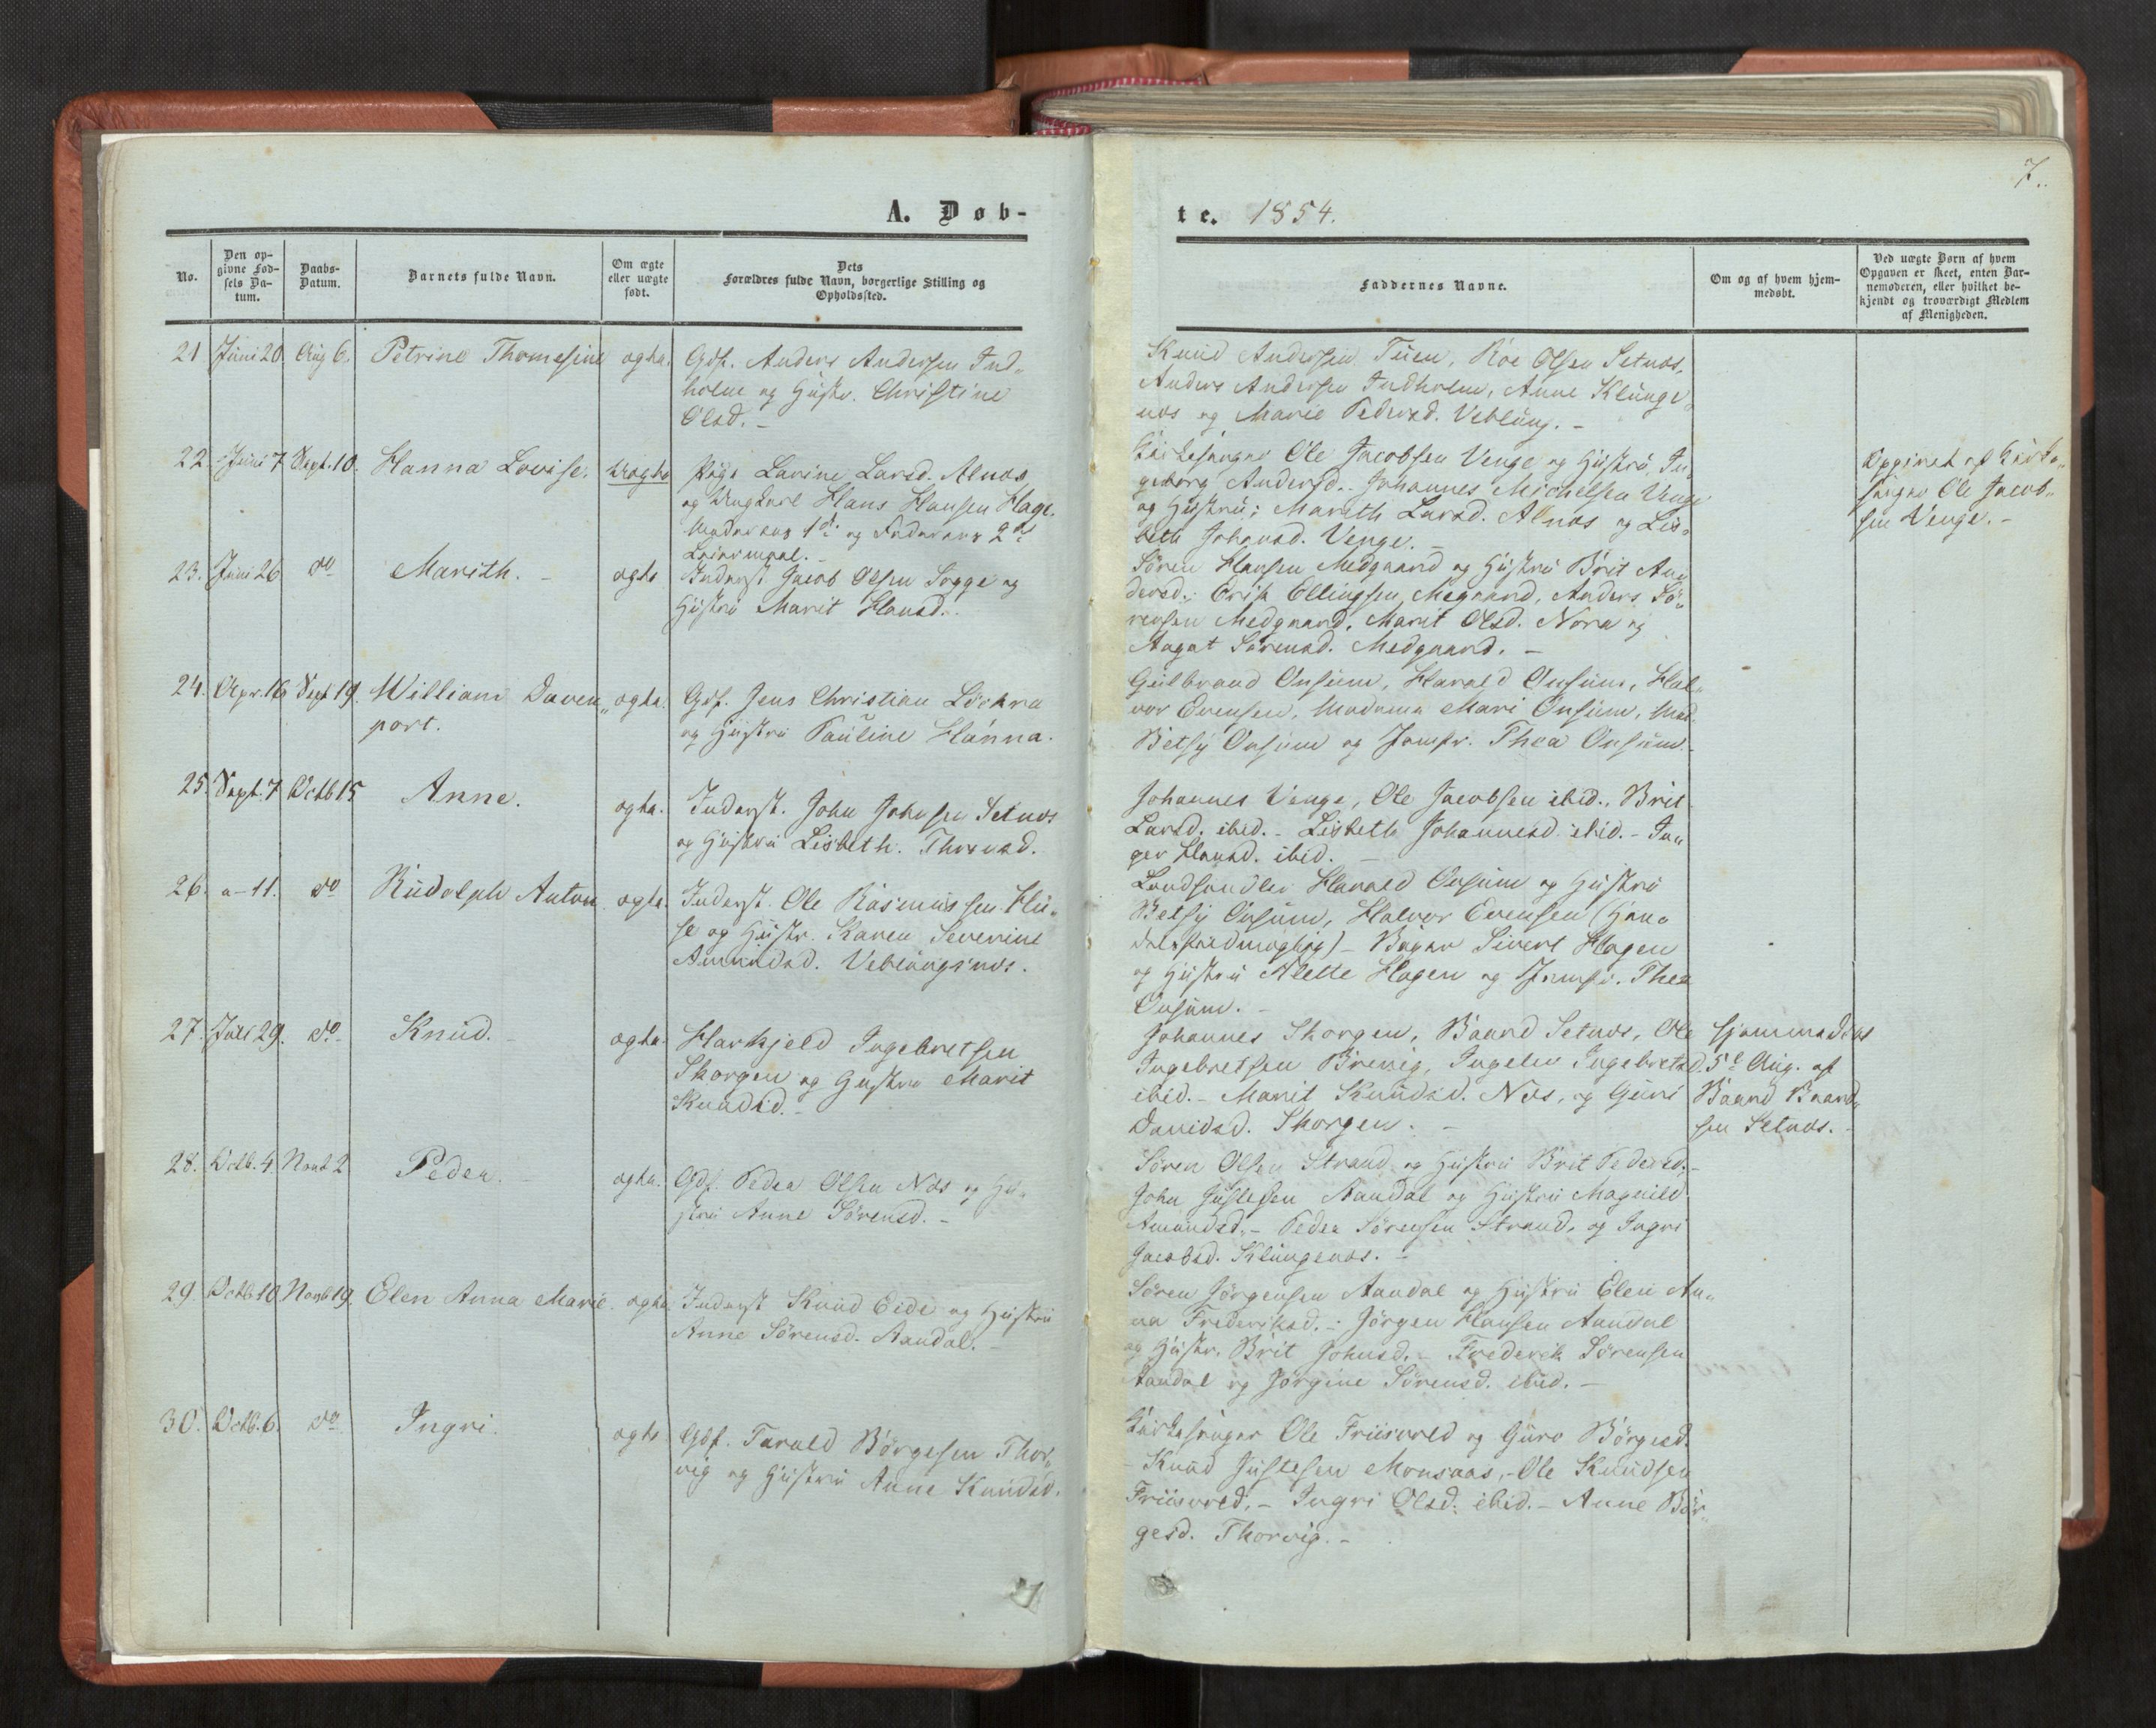 A. Døb-
No.
Den op-
givne Fød-
sels Da-
tum.
Daabs-
Datum.
Barnets fulde Navn.
Om ægte
eller uægte
født.
Dets
Forældres fulde Navn, borgerlige Stilling og
Opholdssted.
21 Juni 20. Aug 6. Petrine Thomesine ægte. Gdf. Anders Andersen Ind-
holm og Hustr. Christine
Olsd. -
22. Juni 7 Sept. 10. Hanna Lovise. Uægte Pige Larine Larsd. Alnæs
og Ungkarl Hans Hansen Hage.
Moderens 1ste og Faderens 2det
Leiermaal. -
23. Juni 26 do Marith. - ægte Inderst Jacob Olsen Sogge og
Hustru Marit Hansd.
24. Apr. 16 Sept 19. William Daven„ ægte. Gdf. Jens Christian Lochra
port. og Hustru Pauline Hanna.
25. Sept. 7 Octb 15 Anne. ægte. Inderst. John Johnsen Setnæs
og Hustru Lisbeth.
26. a - 11. do Rudolph Anton ægte. Inderst. Ole Rasmussen Hu„
se og Hustr. Karen Severine
Amundsd. Veblungsnæs.
27. Juli 29. do Knud. ægte. Harkjeld Ingebretsen
Skorgen og Hustru Marit
Knudsd. -
28. Octb. 4. Novb 2 Peder. ægte. Gdf. Peder Olsen Næs og Hu-
stru Anne Sørensd. -
29. Octb 10 Novb 19. Elen Anna Marie. ægte Inderst Knud Eide og Hustru
Anne Sørensd. Aandal. -
30. Octb. 6. do Ingri. ægte Gdf. Tarald Børgesen Thor„
vig og Hustru Anne Knudsd.
7.
te. 1854.
Faddernes Navne.
Om og af hvem hjem-
medøbt.
Ved uægte Børn af hvem
Opgaven er skeet, enten Bar-
nemoderen, eller hvilket be-
kjendt og troværdigt Medlem
af Menigheden.
Knud Andersen Tuen, Roe Olsen Setnæs,
Anders Andersen Indholm, Anne Klunge„
næs og Marie Pedersd. Veblung. -
Kirkesanger Ole Jacobsen Venge og Hustru, In„
geborg Andersd. Johannes Michelsen Venge
og Hustru; Marith Larsd. Alnæs og Lis„
beth Johansd. Venge. -
Opgivet af Kirke„
sanger Ole Jacob„
sen Venge. -
Søren Hansen Medgaard og Hustru Brit An„
dersd.; Erik Ellingsen Megaard, Anders Sø„
rensen Medgaard, Marit Olsd. Nora og
Aagot Sørensd. Medgaard. -
Gulbrand Onsum, Harald Onsum, Hal„
vor Evensen, Madame Mari Onsum, Mad.
Betsy Onsum og Jomfr. Thea Onsum.
Johannes Venge, Ole Jacobsen ibid., Brit
Larsd. ibid. - Lisbeth Johannesd. ibid. - In„
ger Hansd. ibid. -
Landhandler Harald Onsum og Hustru
Betsy Onsum, Halvor Evensen (Han„
delsfuldmægtig) - Sivert Hagen
og Hustru Alette Hagen og Jomfr. Thea
Onsum. -
Johannes Skorgen, Baard Setnæs, Ole
Ingebretsen Brevig, Ingelev Ingebretsd.
ibid. - Marit Knudsd. Næs, og Guri
Davidsd. Skorgen. -
hjemmedøbt
5te Aug. af
Baard Baard„
sen Setnæs. -
Søren Olsen Strand og Hustru Brit Pedersd. -
John Justesen Aandal og Hustru Magnild
Amundsd. - Peder Sørensen Strand, og Ingri
Jacobsd. Klungenæs. -
Søren Jørgensen Aandal og Hustru Elen An„
na Frederiksd. - Jørgen Hansen Aandal
og Hustr. Brit Johnsd. - Frederik Sørensen
Aandal og Jørgine Sørensd. ibid. -
Kirkesanger Ole Friisvold og Guro Børgesd.
- Knud Justesen Monsaas, - Ole Knudsen
Friisvold, - Ingri Olsd. ibid. - Anne Bør„
gesd. Thorvig. -